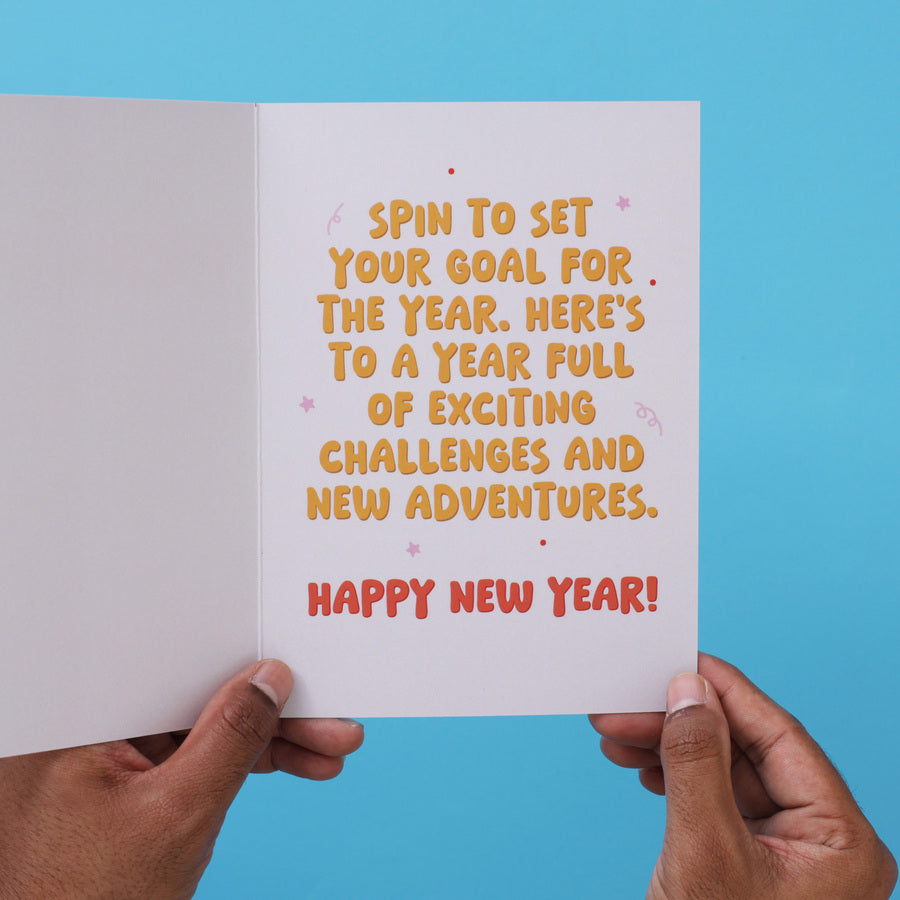 SPIN TO SET
YOUR GOAL FOR
THE YEAR. HERE'S
TO A YEAR FULL
OF EXCITING
CHALLENGES AND
NEW ADVENTURES.
HAPPY NEW YEAR!